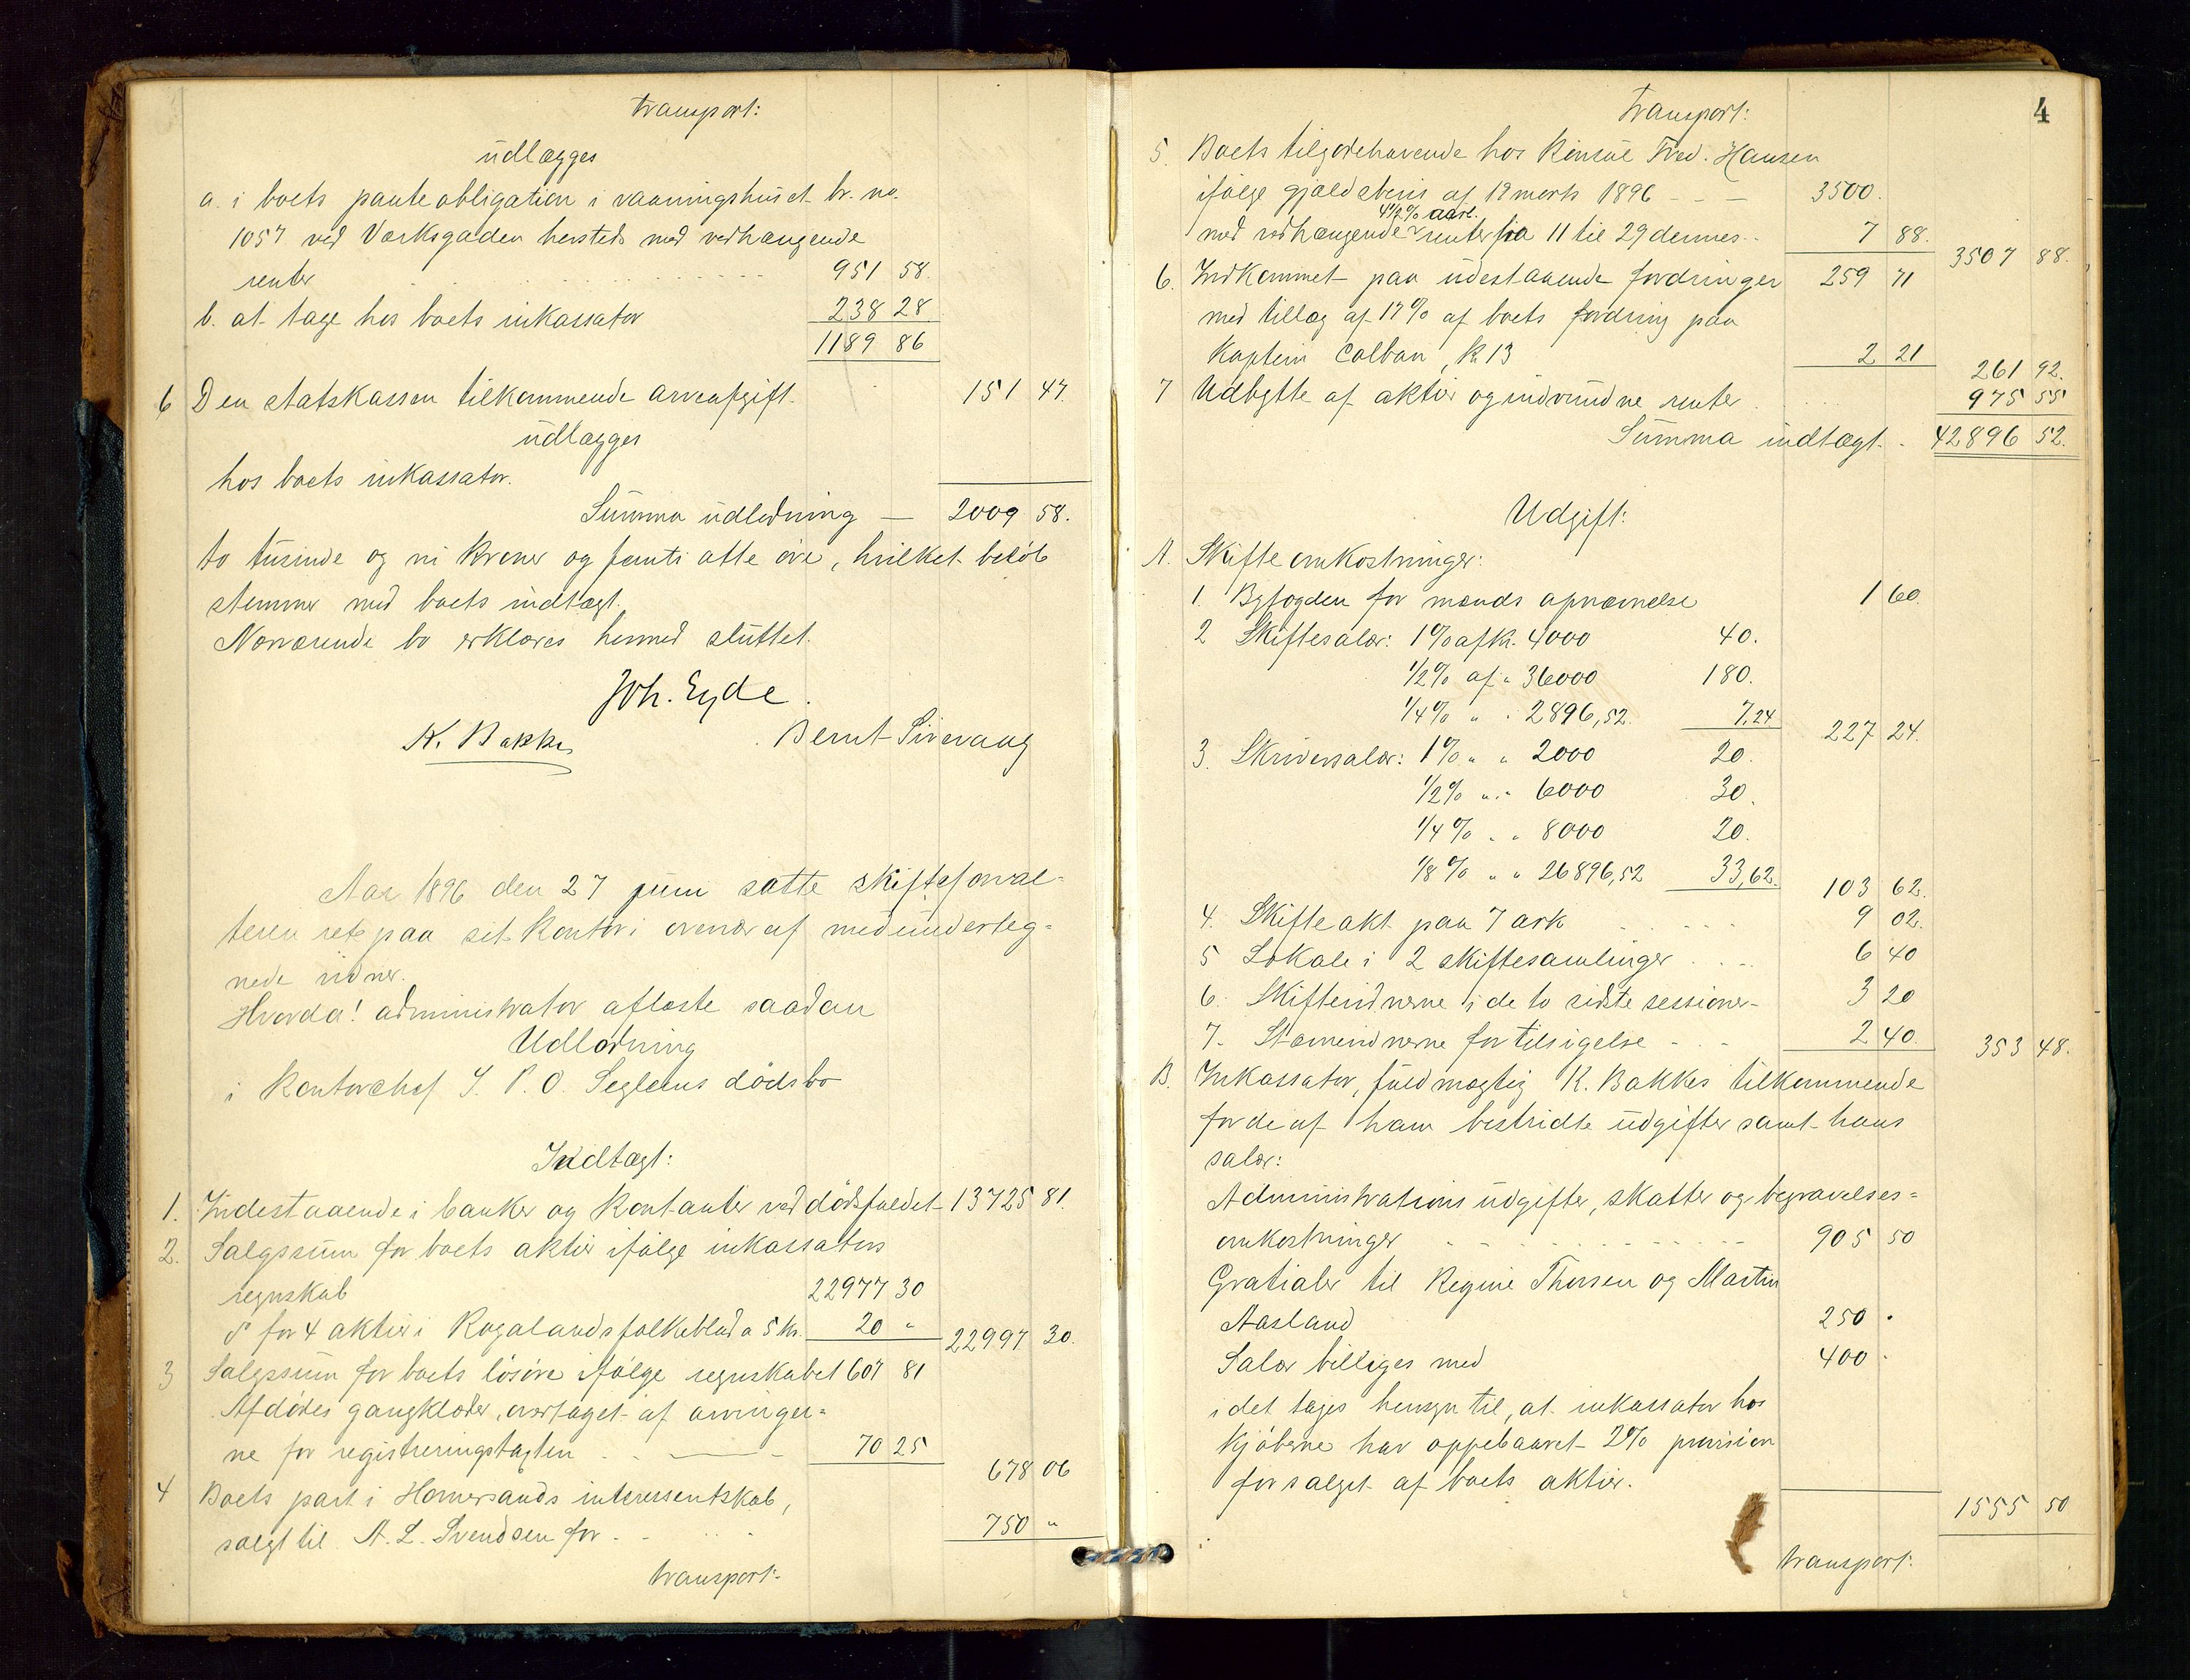 transport:
udlægges
a. i boets panteobligation i vaaningshuset br. no.
1057 ved Værksgaden hersteds med vedhængende
renter 951 58.
b. at tage hos boets inkassator 238 28.
1189 86
6 Den statskassen tilkommende arveafgift. 151 47.
udlægges
hos boets inkassator.
Summa udlodning — 2009 58.
to tusinde og ni kroner og femti otte øre, hvilket beløb
stemmer med boets indtægt.
Nærværende bo erklæres hermed sluttet.
Joh. Eyde.
K. Bakke Bernt Sirevaag
Aar 1896 den 27 juni satte skifteforval-
teren ret paa sit kontor i overvær af medunderteg-
nede vidner.
Hvorda! administrator afleste saadan
Udlodning
i kontorchef S. P. O. Segleens dödsbo
Indtægt:
1. Indestaaende i banker og kontanter ved dødsfaldet 13725 81.
2. Salgssum for boets aktier ifølge inkassators
regnskab 22977 30
do for 4 aktier i Rogalands folkeblad a 5 kr. 20 " 22997 30.
3 Salgssum for boets løsøre ifølge regnskabet 607 81
Afdødes gangklæder, overtaget af arvinger-
ne for registreringstaxten 70 25
678 06
4 Boets part i Homersands interessentskab,
solgt til A. L. Svendsen for 750 "
transport:
4
transport:
5. Boets tilgodehavende hos konsul Fred. Hansen
ifølge gjældsbevis af 12 marts 1896 3500.
4 1/2 % aarl.
med vedhængende renter fra 11 til 29 dennes 7 88.
3507 88.
6. Indkommet paa udestaaende fordringer 259 71
med tillæg af 17 % af boets fordring paa
kaptein Calban, kr 13 2 21
261 92.
7 Udbytte af aktier og indvundne renter 975 55
Summa indtægt. 42896 52.
Udgift:
A. Skifteomkostninger:
1. Byfogden for mænds opnævnelse 1 60.
2 Skiftesalær: 1 % af kr. 4000 40.
1/2 % af " 36000 180.
1/4 % " " 2896,52. 7,24 227 24.
3. Skriversalær: 1 % " " 2000 20.
1/2 % " " 6000 30.
1/4 % " " 8000 20.
1/8 % " " 26896,52 33,62. 103 62.
4. Skifteakt paa 7 ark 9 02.
5 Lokale i 2 skiftesamlinger 6 40
6. Skiftevidnerne i de to sidste sessioner 3 20
7. Stævnevidnerne for tilsigelse 2 40.
353 48.
B. Inkassator, fuldmægtig K. Bakkes tilkommende
for de af ham bestridte udgifter samt hans
salær:
Administrationsudgifter, skatter og begravelses-
omkostninger 905 50
Gratialer til Regine Thorsen og Martin
Aasland 250 .
Salær billiges med 400 .
idet tages hensyn til, at inkassator hos
kjøberne har oppebaaret 2% provision
for salget af boets aktier.
1555 50
transport: